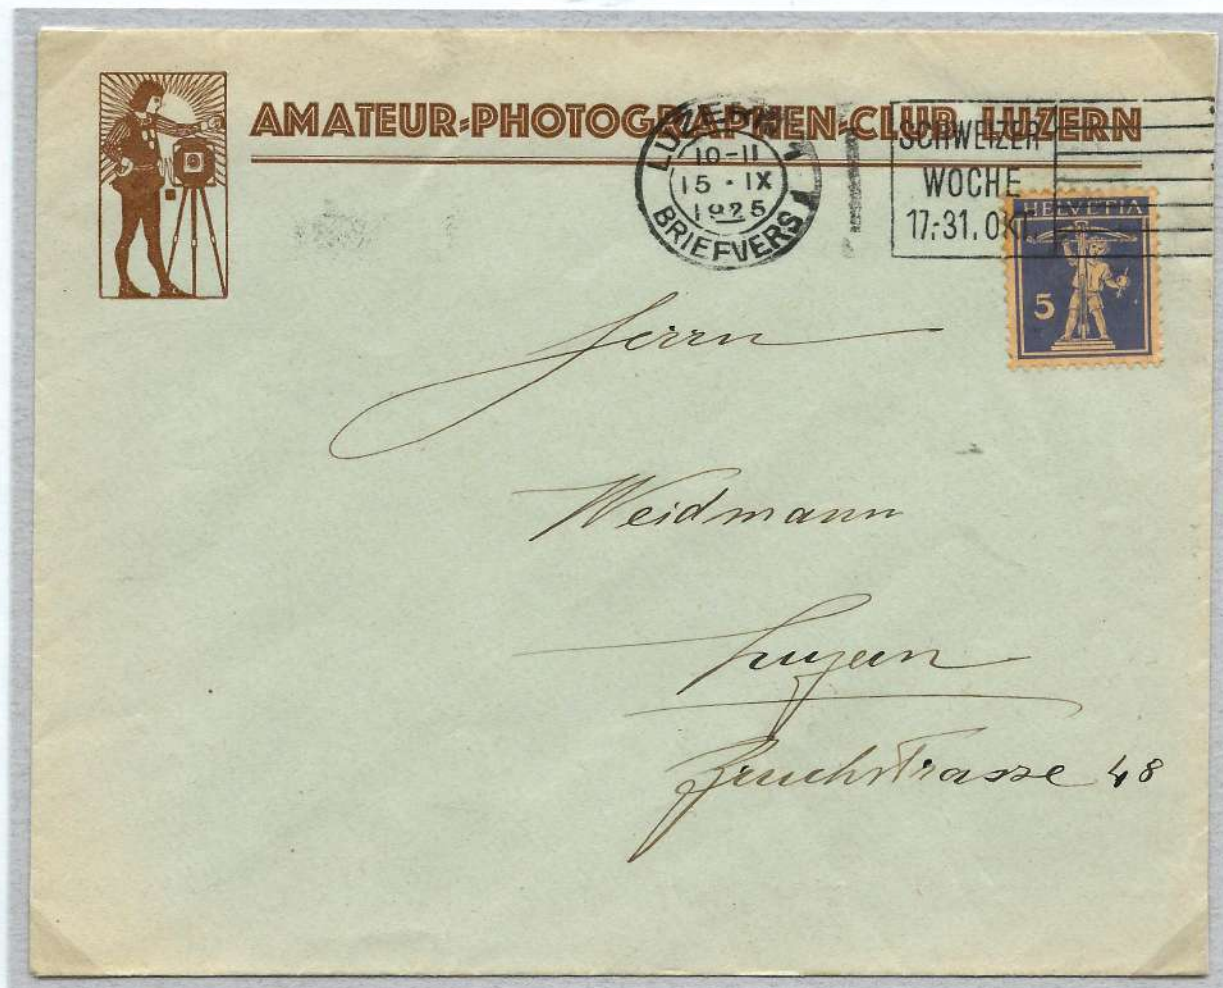 AMATEUR-PHOTOGRAPHEN-CLUB LUZERN
LUZERN 1
10-11
15·IX
1925
BRIEFVERS.
SCHWEIZER
WOCHE
17.-31. OKT.
HELVETIA
5
Herrn
Weidmann
Luzern
Bruchstrasse 48